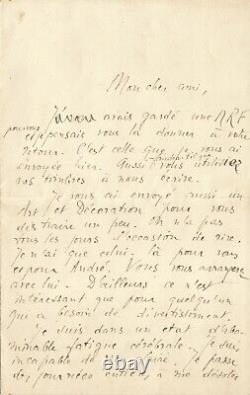 Mon cher ami,
J'avais gardé une NRF
et pensais vous la donner à votre
retour. C'est celle que je vous ai
envoyée hier. Aussi vous
vos timbres à nous écrire.
Je vous ai envoyé aussi un
Art et Décoration pour vous
un peu. On n'a pas
tous les jours l'occasion de rire.
Je n'ai que celui-là pour vous
André. Vous vous arrangerez
avec lui. D'ailleurs ce n'est
intéressant que pour quelqu'un
qui a besoin de divertissement.
Je suis dans un état d'abo-
minable fatigue cérébrale. Je suis
incapable de Je passe
des journées entières à me désoler